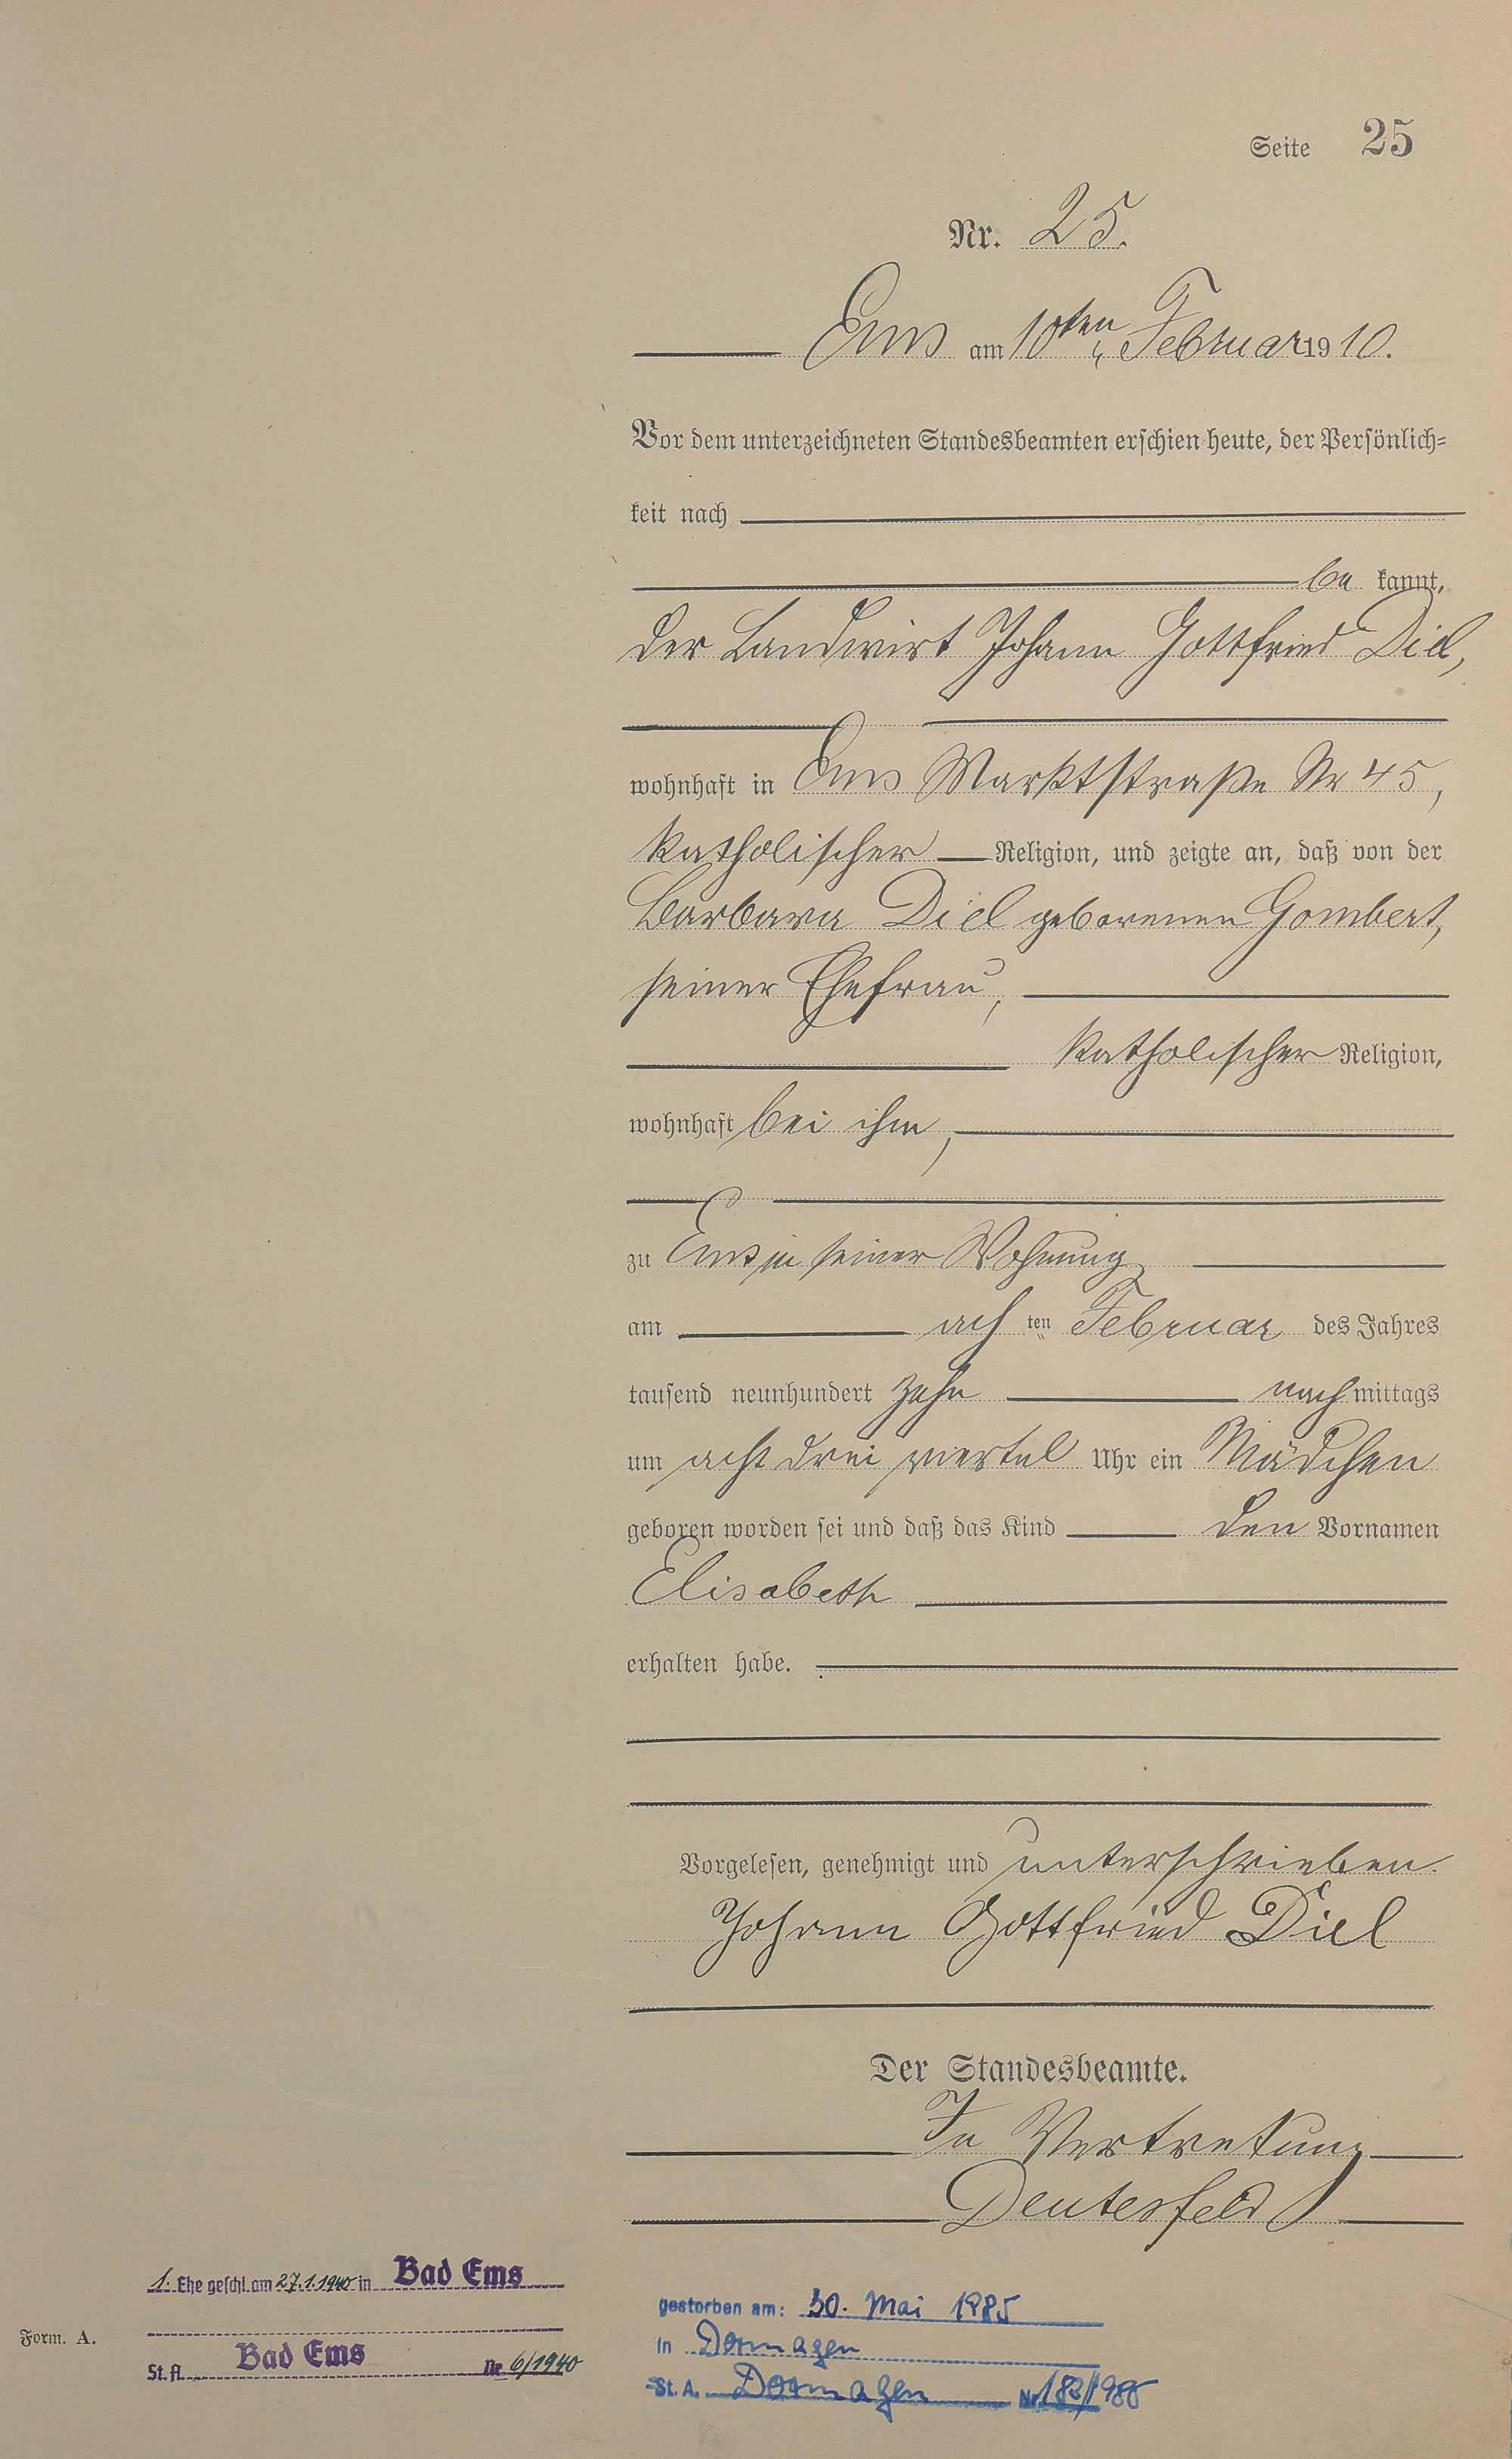 Seite 25
Nr. 25.
Ems am 10ten Februar 1910.
Vor dem unterzeichneten Standesbeamten erschien heute, der Persönlich-
keit nach
be kannt,
der Landwirt Johann Gottfried Diel,
wohnhaft in Ems Marktstraße Nr 45,
katholischer Religion, und zeigte an, daß von der
Barbara Diel geborenen Gombert,
seiner Ehefrau,
katholischer Religion,
wohnhaft bei ihm,
zu Ems in seiner Wohnung
am ach ten Februar des Jahres
tausend neunhundert zehn nach mittags
um acht drei viertel Uhr ein Mädchen
geboren worden sei und daß das Kind den Vornamen
Elisabeth
erhalten habe.
Vorgelesen, genehmigt und unterschrieben.
Johann Gottfried Diel
Der Standesbeamte.
In Vertretung
Deutesfeld
1. Ehe geschl. am 27.1.1940 in Bad Ems
St. A. Bad Ems Nr. 6/1940
Form. A.
gestorben am: 30. Mai 1985
in Dormagen
St. A. Dormagen Nr.